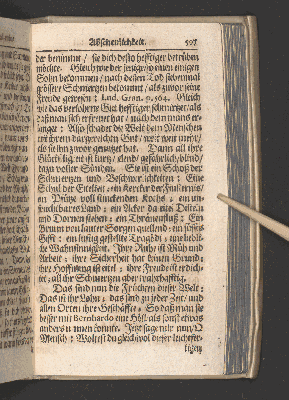 Abscheulichkeit. 597
der benimmt / sie dich desto hefftiger betrüben
möchte. Gleich wie der jenige / so einen einigen
Sohn bekommen / nach dessen Tod siebenmal
grösser Schmertzen bekommt / als zuvor seine
Freude gewesen: Lud. Gran. p. 504. Gleich
wie das verlohrne Gut hefftiger schmertzet / als
daß man sich erfreuet hat / nach dem mans er-
langet: Also schadet die Welt dem Menschen
mit ihrem dargereichten Gut / weit mehr /
als sie ihm zuvor genutzet hat. Dann all ihre
Glückseligkeit ist kurtz / elend / gefährlich / blind /
sägen voller Sünden. Sie ist ein Schatz der
Schmertzen und Beschwerlichkeiten: Eine
Schul der Eitelkeit: ein Kercker der Finsternis /
ein Pfütze voll stinckenden Kochs / ein un-
fruchtbares Land: ein Acker da nix Disteln
und Dornen stehen: ein Threnenfluß: Ein
Brunn von lauter Sorgen quellend: ein süsses
Gifft: ein lustig gestellte Tragödi: ein liebli-
che Wahnsinnigkeit. Ihre Ruhe ist Müh und
Arbeit: ihre Sicherheit hat keinen Grund:
ihre Hoffnung ist eitel: ihre Freude ist erdich-
tet: all ihr Schmertzen aber wahrhafftig.
Das sind nun die Früchten dieser Welt:
Das ist ihr Lohn: das sind zu jeder Zeit / und
allen Orten ihre Geschäffte: So daß man sie
besser mit Bernhardo eine Höll als sonst etwas
anders nennen könnte. Jetzt sage mir nun / O
Mensch: Woltest du gleichwol dieser leichtfer-
tigen